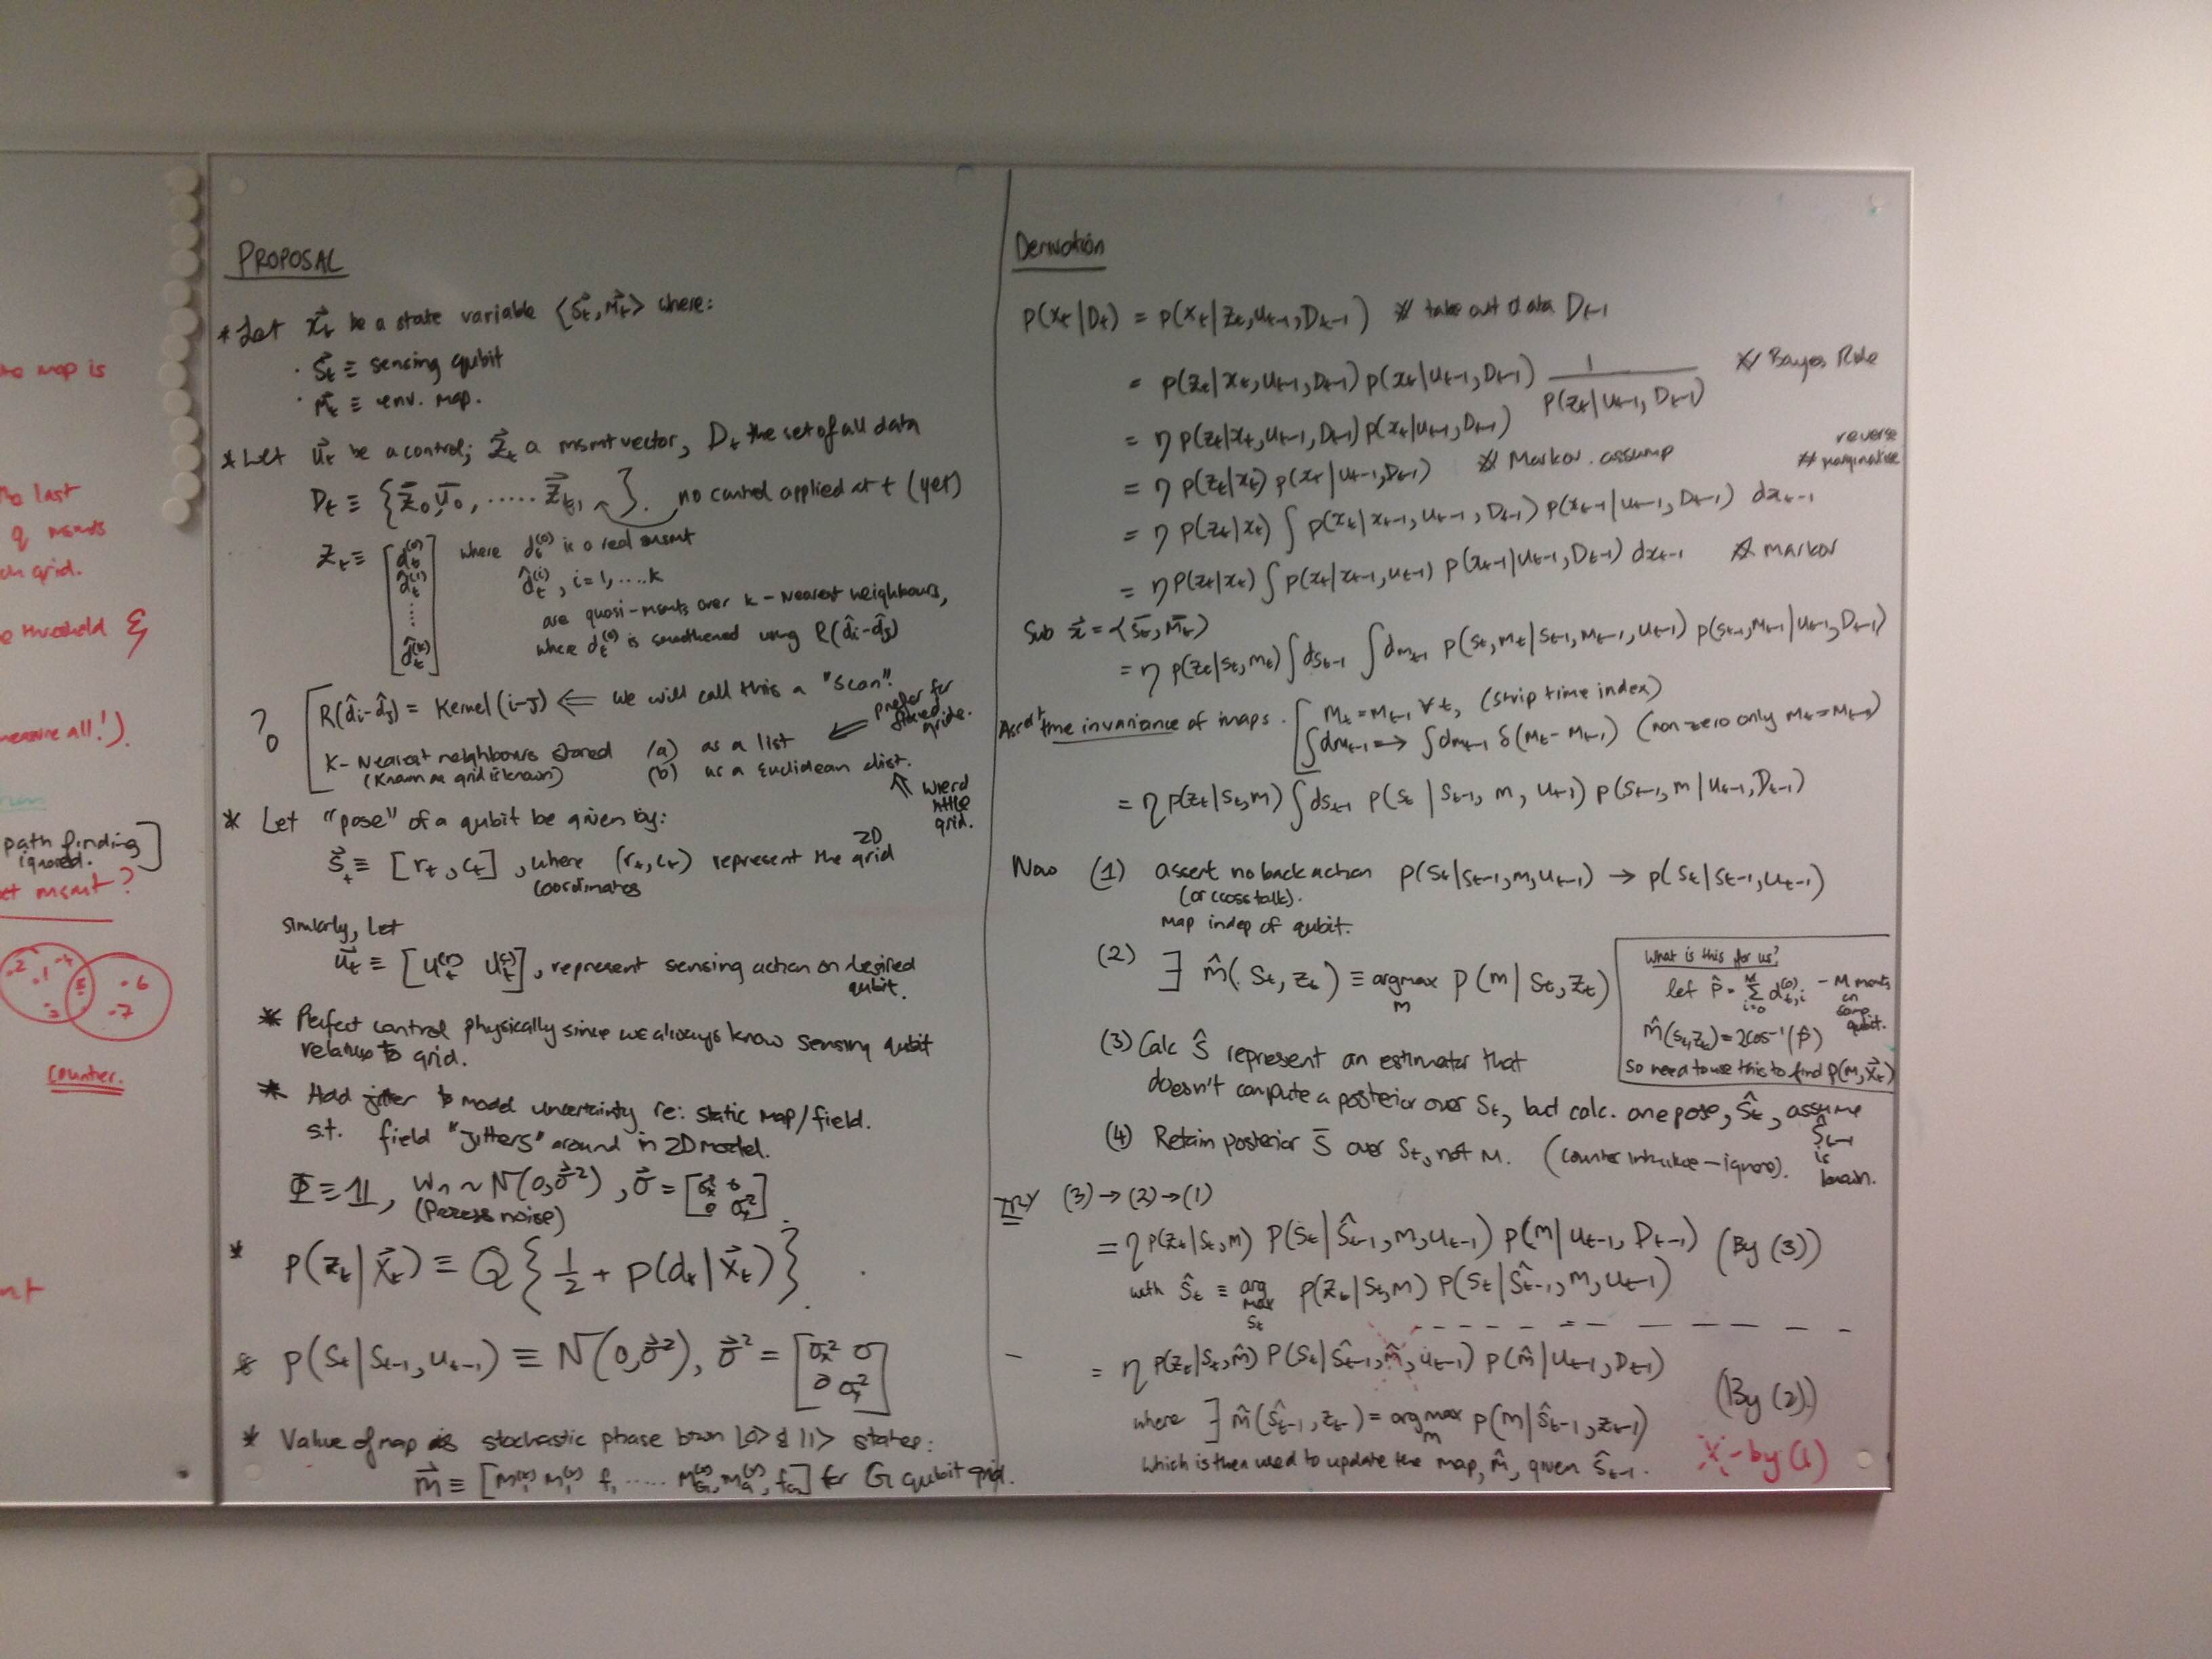 the map is
last
msmts
grid.
threshold &
measure all!).
path finding
ignored.
msmt?
-2
-1
-4
5
-6
-7
Counter.
PROPOSAL
* Let x⃗t be a state variable ⟨S⃗t, M⃗t⟩ where:
· S⃗t ≡ sensing qubit
· M⃗t ≡ env. map.
* Let u⃗t be a control; z⃗t a msmt vector, Dt the set of all data
Dt ≡ {z⃗0, u⃗0, ..... z⃗t, }. no control applied at t (yet)
Zt ≡ [dt^(0) d̂t^(1) ⋮ d̂t^(k)] where dt^(0) is a real msmt
d̂t^(i), i=1,....k
are quasi-msmts over k-nearest neighbours,
where dt^(0) is smoothened using R(d̂i-d̂j)
? [ R(d̂i-d̂j) = Kernel(i-j) ⇐ we will call this a "scan".
K-Nearest neighbours stored (a) as a list ⇐ prefer for fixed grid.
(Known as grid is known) (b) as a Euclidean dist.
↖ wierd little grid.
* Let "pose" of a qubit be given by:
S⃗t ≡ [rt, ct], where (rt, ct) represent the 2D grid
coordinates
Similarly, let
u⃗t ≡ [ut^(r) ut^(c)], represent sensing action on desired
qubit.
* Perfect control physically since we always know sensing qubit
relative to grid.
* Add jitter to model uncertainty re: static map/field.
s.t. field "jitters" around in 2D model.
Φ ≡ 𝟙, wn ~ N(0, σ⃗²), σ⃗ = [σx² 0 0 σy²]
(Process noise)
* p(zt|x⃗t) ≡ Q{1/2 + p(dt|x⃗t)}
* p(st|st-1, ut-1) ≡ N(0, σ⃗²), σ⃗² = [σx² 0 0 σy²]
* Value of map is stochastic phase btwn |0> & |1> states:
m⃗ ≡ [m1^(x) m1^(y) f1 ..... mG^(x), mG^(y), fG] for G qubit grid.
Derivation
p(xt|Dt) = p(xt|zt, ut-1, Dt-1) // take out data Dt-1
= p(zt|xt, ut-1, Dt-1) p(xt|ut-1, Dt-1) 1/p(zt|ut-1, Dt-1) // Bayes Rule
= η p(zt|xt, ut-1, Dt-1) p(xt|ut-1, Dt-1)
= η p(zt|xt) p(xt|ut-1, Dt-1) // Markov. assump
reverse
// marginalise
= η p(zt|xt) ∫ p(xt|xt-1, ut-1, Dt-1) p(xt-1|ut-1, Dt-1) dxt-1
= η p(zt|xt) ∫ p(xt|xt-1, ut-1) p(xt-1|ut-1, Dt-1) dxt-1 // Markov
Sub x⃗ = ⟨S⃗t, M⃗t⟩
= η p(zt|st, mt) ∫dst-1 ∫dmt-1 p(st, mt|st-1, mt-1, ut-1) p(st-1, mt-1|ut-1, Dt-1)
Assert time invariance of maps. [ Mt = Mt-1 ∀ t, (strip time index)
∫dmt-1 → ∫dmt-1 δ(Mt - Mt-1) (non zero only Mt = Mt-1)
= η p(zt|st, m) ∫dst-1 p(st|st-1, m, ut-1) p(st-1, m|ut-1, Dt-1)
Now (1) assert no back action p(st|st-1, m, ut-1) → p(st|st-1, ut-1)
(or cross talk).
Map indep of qubit.
(2) ∃ m̂(st, zt) ≡ argmax m p(m|st, zt)
What is this for us?
let p̂ = Σ i=0 M dt,i^(0) - M msmts on same qubit.
m̂(st, zt) = 2cos⁻¹(p̂)
So need to use this to find p(m, x⃗t)
(3) Calc Ŝ represent an estimator that
doesn't compute a posterior over St, but calc. one pose, Ŝt, assume
Ŝt-1
is
known.
(4) Retain posterior S̄ over St, not M. (Counter intuitive - ignore).
TRY (3) → (2) → (1)
= η p(zt|st, m) p(st|ŝt-1, m, ut-1) p(m|ut-1, Dt-1) (By (3))
with ŝt ≡ arg max st p(zt|st, m) p(st|ŝt-1, m, ut-1)
= η p(zt|st, m̂) p(st|ŝt-1, m̂, ut-1) p(m̂|ut-1, Dt-1) (By (2))
where ∃ m̂(ŝt-1, zt) = argmax m p(m|ŝt-1, zt-1)
Which is then used to update the map, m̂, given ŝt-1.
X - by (1)